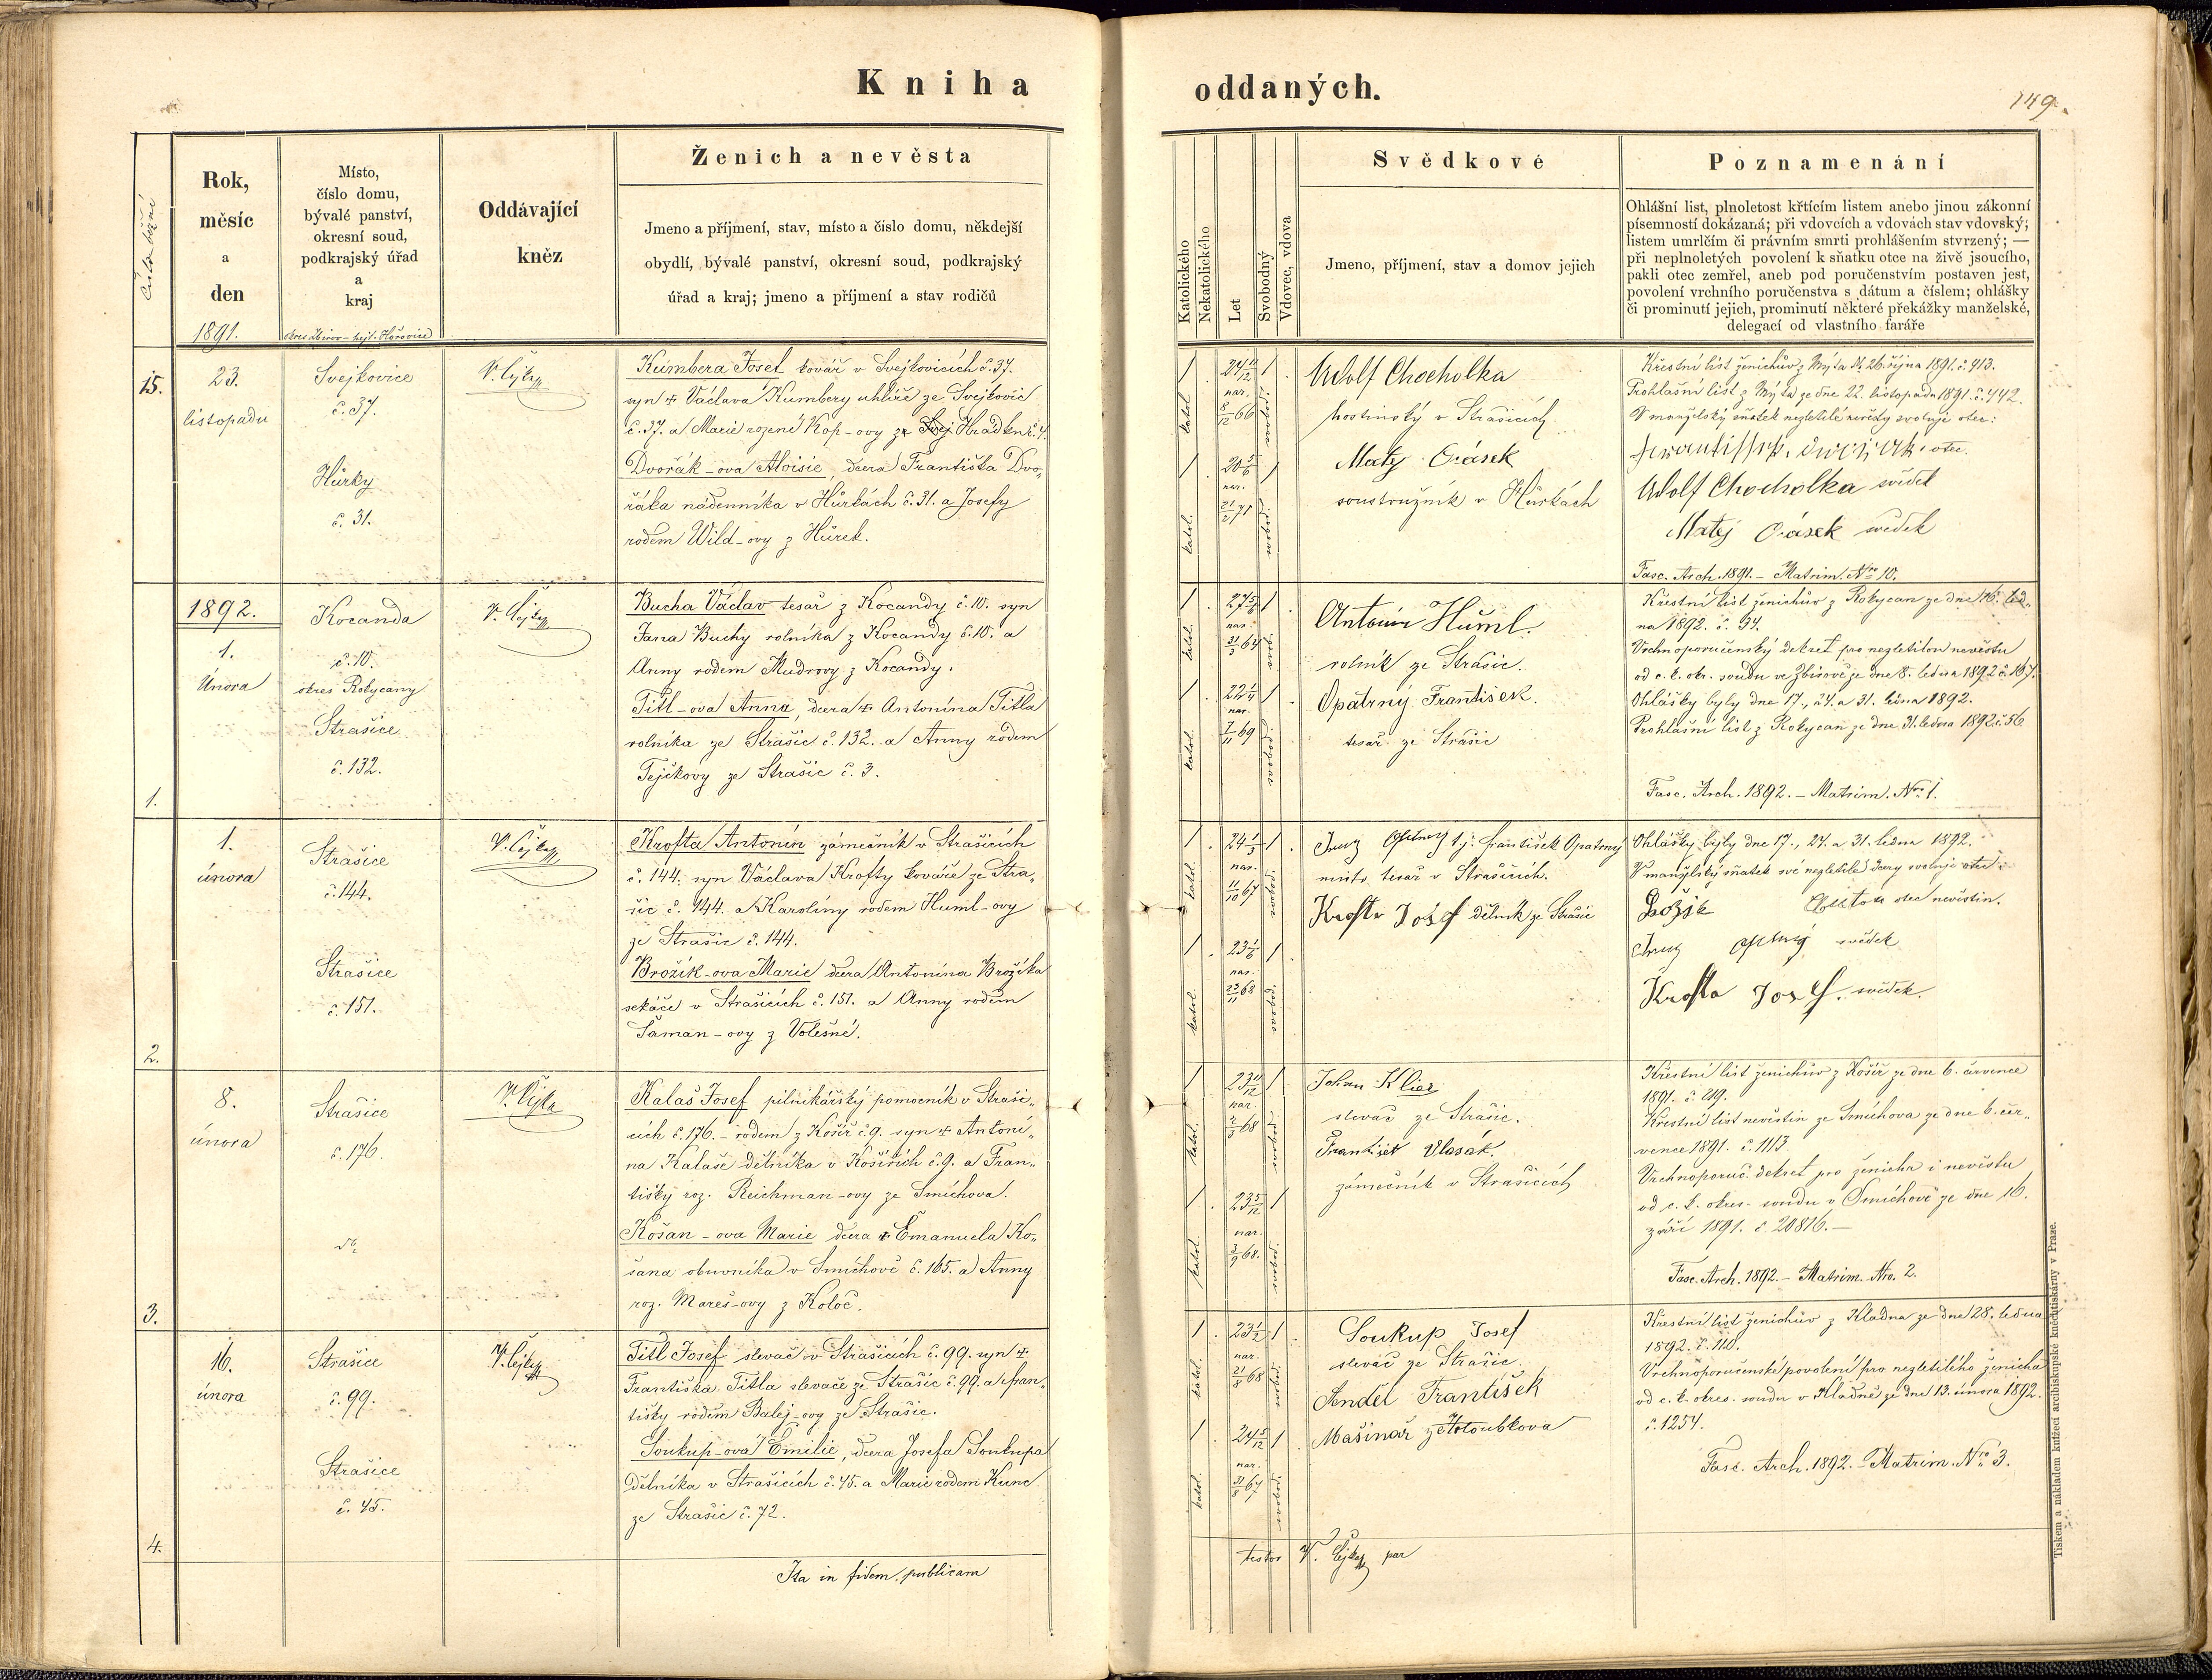 Kniha oddaných.
149.
Číslo běžní
Rok,
měsíc
a
den
1891.
Místo,
číslo domu,
bývalé panství,
okresní soud,
podkrajský úřad
a
kraj
okres Zbirov - hejt. Hořovice
Oddávající
kněz
Ženich a nevěsta
Jmeno a příjmení, stav, místo a číslo domu, někdejší
obydlí, bývalé panství, okresní soud, podkrajský
úřad a kraj; jmeno a příjmení a stav rodičů
Katolického
Nekatolického
Let
Svobodný
Vdovec, vdova
Svědkové
Jmeno, příjmení, stav a domov jejich
Poznamenání
Ohlášní list, plnoletost křtícím listem anebo jinou zákonní
písemností dokázaná; při vdovcích a vdovách stav vdovský;
listem umrlčím či právním smrti prohlášením stvrzený; —
při neplnoletých povolení k sňatku otce na živě jsoucího,
pakli otec zemřel, aneb pod poručenstvím postaven jest,
povolení vrchního poručenstva s dátum a číslem; ohlášky
či prominutí jejich, prominutí některé překážky manželské,
delegací od vlastního faráře
15.
23.
listopadu
Svejkovice
č. 37.
Hůrky
č. 31.
Kumbera Josef kovář v Svejkovicích č. 37.
syn + Václava Kumbery uhlíře ze Svejkovic
č. 37. a Marie rozené Kop-ovy ze Hrádku č. 4.
Dvořák-ova Aloisie, dcera Františka Dvo-
řáka nádenníka v Hůrkách č. 31. a Josefy
rodem Wild-ovy z Hůrek.
1 24 11/12 1
nar.
8/12 66
katol. svobod.
1 20 5/6 1
nar.
21/2 71
katol. svobod.
Adolf Chocholka
hostinský v Strašicích
Matěj Orásek
soustružník v Hůrkách
Křestní list ženichův z Mýta dt. 26. října 1891. č. 413.
Prohlašní list z Mýta ze dne 22. listopadu 1891. č. 442.
V manželský sňatek nezletilé nevěsty svoluje otec:
otec.
Adolf Chocholka svědek
Matěj Orásek svědek
Fasc. Arch. 1891. - Matrim. Nro 10.
1892.
1.
Února
1.
Kocanda
č. 10.
okres Rokycany
Strašice
č. 132.
Bucha Václav tesař z Kocandy č. 10. syn
Jana Buchy rolníka z Kocandy č. 10. a
Anny rodem Mudrovy z Kocandy.
Titl-ova Anna, dcera + Antonína Titla
rolníka ze Strašic č. 132. a Anny rodem
Tejčkovy ze Strašic č. 3.
1 27 5/6 1
nar.
31/3 64
katol.
1 22 1/4 1
nar.
7/11 69
katol. svobod.
Antonín Huml.
rolník ze Strašic.
Opatrný František.
tesař ze Strašic
Křestní list ženichův z Rokycan ze dne 16. led-
na 1892. č. 34.
Vrchnoporučenský dekret pro nezletilou nevěstu
od c. k. okr. soudu ve Zbirově ze dne 8. ledna 1892 č. 167.
Ohlášky byly dne 17., 24. a 31. ledna 1892.
Prohlašní list z Rokycan ze dne 31. ledna 1892 č. 56
Fasc. Arch. 1892. - Matrim. Nro 1.
2.
1.
února
Strašice
č. 144.
Strašice
č. 151.
Krofta Antonín zámečník v Strašicích
č. 144. syn Václava Krofty kováře ze Stra-
šic č. 144. a Karolíny rodem Huml-ovy
ze Strašic č. 144.
Brožík-ova Marie dcera Antonína Brožíka
sekáče v Strašicích č. 151. a Anny rodem
Šaman-ovy z Volešné.
1 24 1/3 1
nar.
11/10 67
katol. svobod.
1 23 1/6 1
nar.
23/11 68
katol. svobod.
t. j. František Opatrný
místo tesař v Strašicích.
Krofta Josef dělník ze Strašic
Ohlášky byly dne 17., 24. a 31. ledna 1892.
V manželský sňatek své nezletilé dcery svoluje otec:
otec nevěstin.
svědek
Krofta Josef. svědek.
3.
8.
února
Strašice
č. 176.
Kalaš Josef pilnikářský pomocník v Straši-
cích č. 176. - rodem z Košíř č. 9. syn + Antoni-
na Kalaše dělníka v Košířích č. 9. a Fran-
tišky roz. Reichman-ovy ze Smíchova.
Košan-ova Marie dcera + Emanuela Ko-
šana obuvníka v Smíchově č. 165. a Anny
roz. Mareš-ovy z Koloč.
1 23 11/12 1
nar.
68
katol. svobod.
1 23 5/12 1
nar.
3/9 68.
katol. svobod.
Johan Klier
slevač ze Strašic.
František Vlasák.
zámečník v Strašicích
Křestní list ženichův z Košíř ze dne 6. července
1891. č. 219.
Křestní list nevěstin ze Smíchova ze dne 6. čer-
vence 1891. č. 1113.
Vrchnoporuč. dekret pro ženicha i nevěstu
od c. k. okres. soudu v Smíchově ze dne 16.
září 1891. č. 20816. —
Fasc. Arch. 1892. - Matrim. Nro. 2.
4.
16.
února
Strašice
č. 99.
Strašice
č. 45.
Titl Josef slevač v Strašicích č. 99. syn +
Františka Titla slevače ze Strašic č. 99. a Fran-
tišky rodem Balej-ovy ze Strašic.
Soukup-ova Emilie, dcera Josefa Soukupa
dělníka v Strašicích č. 45. a Marie rodem Kunc
ze Strašic č. 72.
1 23 1/2 1
nar.
21/8 68
katol. svobod.
1 24 5/12 1
nar.
31/8 67
katol. svobod.
Soukup Josef
slevač ze Strašic.
Anděl František
Mašinář z Holoubkova
Křestní list ženichův z Kladna ze dne 28. ledna
1892. č. 110.
Vrchnoporučenské povolení pro nezletilého ženicha
od c. k. okres. soudu v Kladně ze dne 13. února 1892.
č. 1254.
Fasc. Arch. 1892. - Matrim. Nro 3.
Ita in fidem publicam
testor V. par
Tiskem a nákladem knížecí arcibiskupské knihtiskárny v Praze.